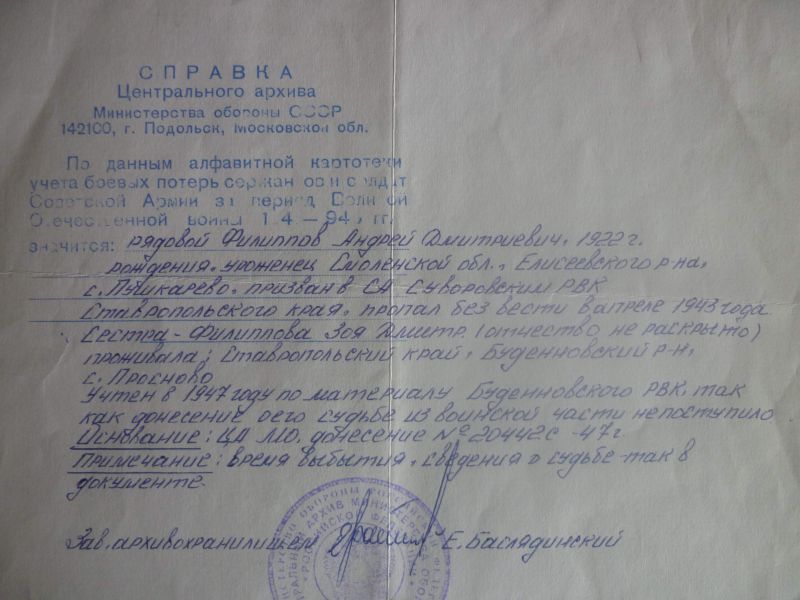 СПРАВКА
Центрального архива
Министерства обороны СССР
142100, г. Подольск, Московской обл.
По данным алфавитной картотеки
учета боевых потерь сержантов и солдат
Советской Армии за период Великой
Отечественной войны 1 4 — 94 гг.
значится: рядовой Филиппов Андрей Дмитриевич, 1922 г.
рождения, уроженец Смоленской обл., Елисеевского р-на,
с. Пушкарево, призван в СА Суворовским РВК
Ставропольского края, пропал без вести в апреле 1943 года.
Сестра - Филиппова Зоя Дмитр. (отчество не раскрыто)
проживала: Ставропольский край, Буденновский р-н,
с. Просново
Учтен в 1947 году по материалу Буденновского РВК, так
как донесение о его судьбе из воинской части не поступило
Основание: ЦА МО, донесение № 20442с -47г
Примечание: время выбытия, сведения о судьбе - так в
документе.
Зав. архивохранилищем Е. Баслядинский